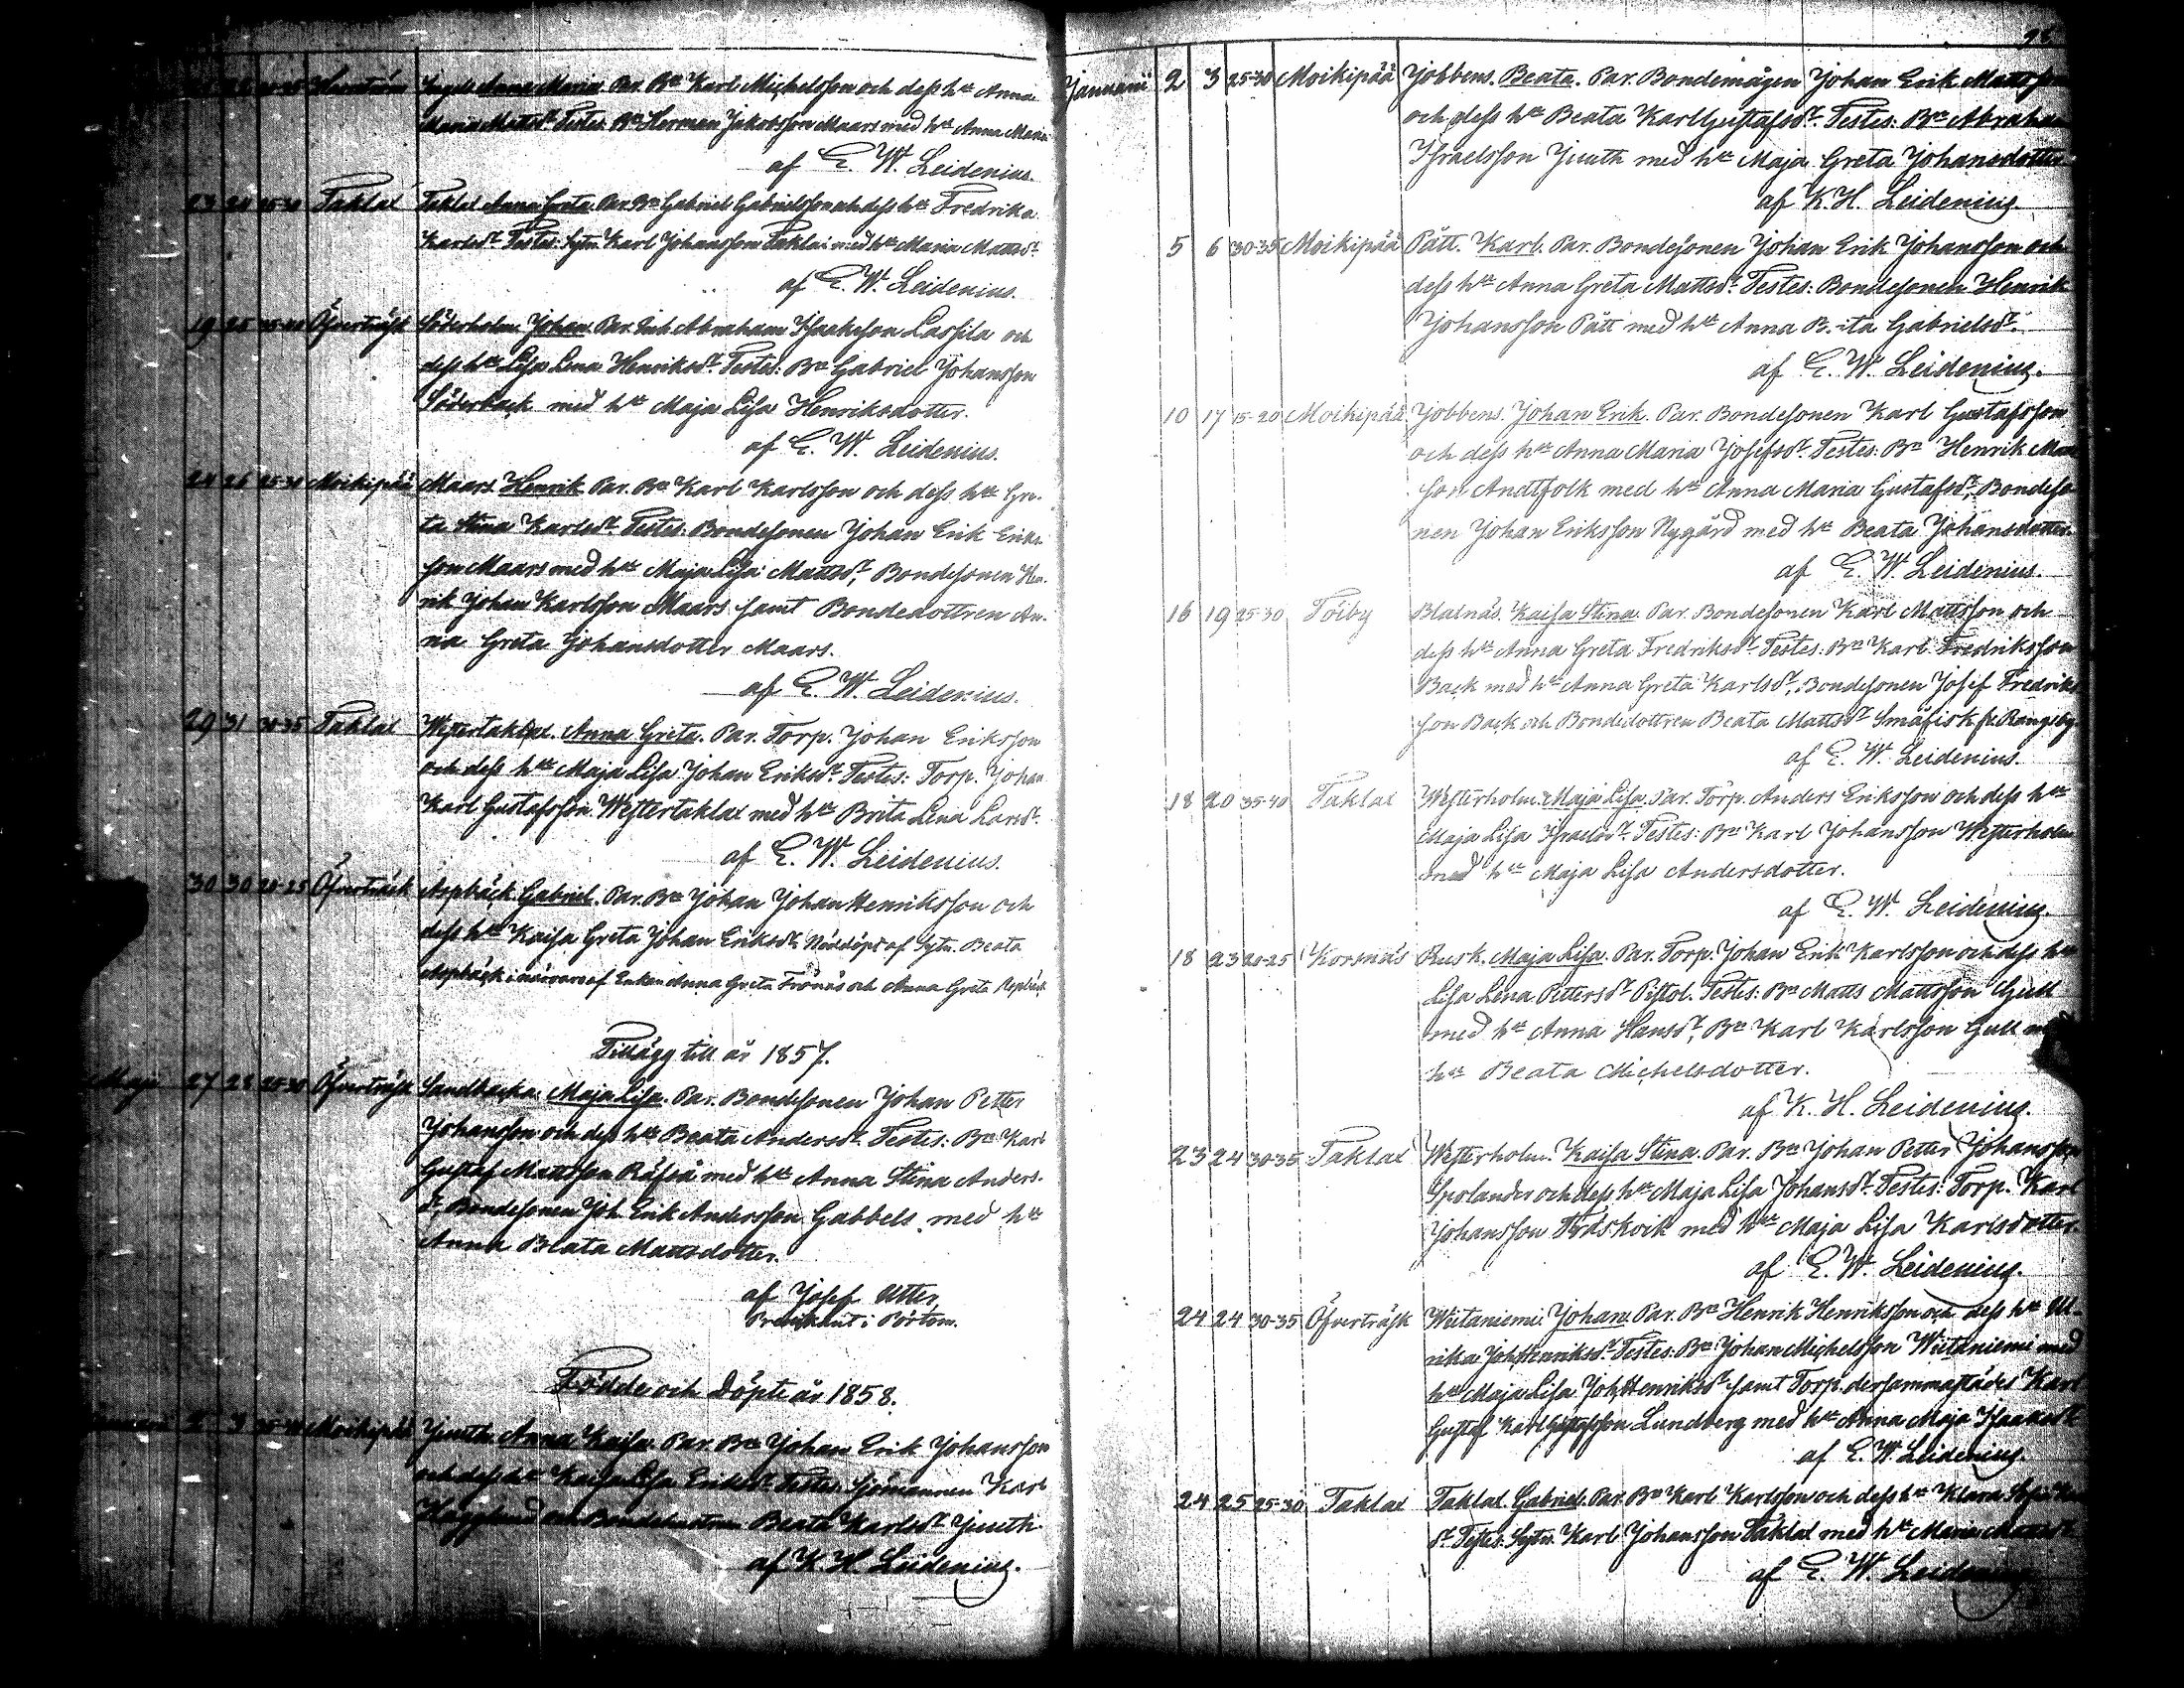 Anna Maria. Par. Bn Karl Michelsson och dess hu Anna
Maria Mattsdr. Testes: Bn Herman Jakobsson Maars med hu Anna Maria
af E. W. Leidenius.
23 24 25-30 Taklax Taklax Anna Greta. Par. Bn Gabriel Gabrielsson och dess hu Fredrika
Karlsdr. Testes: Sytn. Karl Johansson Taklax med hu Maria Mattsdr.
af E. W. Leidenius.
19 25 Öfverträsk Söderholm. Johan. Par. Inh. Abraham Isaaksson Lassila och
dess hu Lisa Lena Henriksdr. Testes: Bn Gabriel Johansson
Söderback med hu Maja Lisa Henriksdotter.
af E. W. Leidenius.
24 26 25-30 Moikipää Maars. Henrik. Par. Bn Karl Karlsson och dess hu Gre-
ta Stina Karlsdr. Testes: Bondesonen Johan Erik Eriks-
son Maars med hu Maja Lisa Mattsdr, Bondesonen Hen-
rik Johan Karlsson Maars samt Bondedottren An-
na Greta Johansdotter Maars.
af E. W. Leidenius.
29 31 30-35 Taklax Westertaklax. Anna Greta. Par. Torp. Johan Eriksson
och dess hu Maja Lisa Johan Eriksdr. Testes: Torp. Johan
Karl Gustafsson Westertaklax med hu Brita Lena Larsdr.
af E. W. Leidenius.
30 30 20-25 Öfverträsk Aspbäck. Gabriel. Par. Bn Johan Johan Henriksson och
dess hu Kaisa Greta Johan Eriksdr. Nöddöpt af Sytn. Beata
Aspbäck i närvaro af Enkan Anna Greta Frönäs och Anna Greta Aspbäck
Tillägg till år 1857.
Maji 27 28 25-30 Öfverträsk Sandbacka. Maja Lisa. Par. Bondesonen Johan Petter
Johansson och dess hu Beata Andersdr. Testes: Bn Karl
Gustaf Mattsson Båsså med hu Anna Stina Anders-
dr, Bondesonen Joh. Erik Andersson Gabbels med hu
Anna Beata Mattsdotter.
af Josef Utter,
Predikant i Pörtom.
Födde och Döpte år 1858.
2 3 Moikipää Juuth. Anna Kaisa. Par. Bn Johan Erik Johansson
och dess hu Kaisa Lisa Eriksdr. Testes: Sjömannen Karl
Hägglund och Beata Karlsdr Juuth.
af K. H. Leidenius.
Januarii 2 3 25-30 Moikipää Jobbens. Beata. Par. Bondemågen Johan Erik Mattsson
och dess hu Beata Karl Gustafsdr. Testes: Bn Abraham
Israelsson Juuth med hu Maja Greta Johansdotter.
af K. H. Leidenius.
5 6 30-35 Moikipää Pått. Karl. Par. Bondesonen Johan Erik Johansson och
dess hu Anna Greta Mattsdr. Testes: Bondesonen Henrik
Johansson Pått med hu Anna Brita Gabrielsdr.
af E. W. Leidenius.
10 17 15-20 Moikipää Jobbens. Johan Erik. Par. Bondesonen Karl Gustafsson
och dess hu Anna Maria Josefsdr. Testes: Bn Henrik Mats-
son Andtfolk med hu Anna Maria Gustafsdr, Bondeso-
nen Johan Eriksson Nygård med hu Beata Johansdotter.
af E. W. Leidenius.
16 19 25-30 Töiby Blaknäs. Kaisa Stina. Par. Bondesonen Karl Mattsson och
dess hu Anna Greta Fredriksdr. Testes: Bn Karl Fredriksson
Back med hu Anna Greta Karlsdr, Bondesonen Josef Fredriks-
son Back och Bondedottren Beata Mattsdr Småfisk fr. Rangsby.
af E. W. Leidenius.
18 20 35-40 Taklax Westerholm. Maja Lisa. Par. Torp. Anders Eriksson och dess hu
Maja Lisa Israelsdr. Testes: Bn Karl Johansson Westerholm
med hu Maja Lisa Andersdotter.
af E. W. Leidenius.
18 23 20-25 Korsnäs Rusk. Maja Lisa. Par. Torp. Johan Erik Karlsson och dess hu
Lisa Lena Pettersdr Pistol. Testes: Bn Matts Mattsson Gull
med hu Anna Hansdr, Bn Karl Karlsson Gull med
hu Beata Michelsdotter.
af K. H. Leidenius.
23 24 30-35 Taklax Westerholm. Kaisa Stina. Par. Bn Johan Petter Johansson
Sporlander och dess hu Maja Lisa Johansdr. Testes: Torp. Karl
Johansson Tådskvik med hu Maja Lisa Karlsdotter.
af E. W. Leidenius.
24 24 30-35 Öfverträsk Wiitaniemi. Johan. Par. Bn Henrik Henriksson och dess hu Ul-
rika Joh. Henriksdr. Testes: Bn Johan Michelsson Wiitaniemi med
hu Maja Lisa Joh. Henriksdr samt Torp. dersammastädes Karl
Gustaf Karl Gustafsson Lundberg med hu Anna Maja Isaaksdr.
af E. W. Leidenius.
24 25 25-30 Taklax Taklax. Gabriel. Par. Bn Karl Karlsson och dess hu Klara
dr. Testes: Sytn. Karl Johansson Taklax med hu Maria Mattsdr.
af E. W. Leidenius.